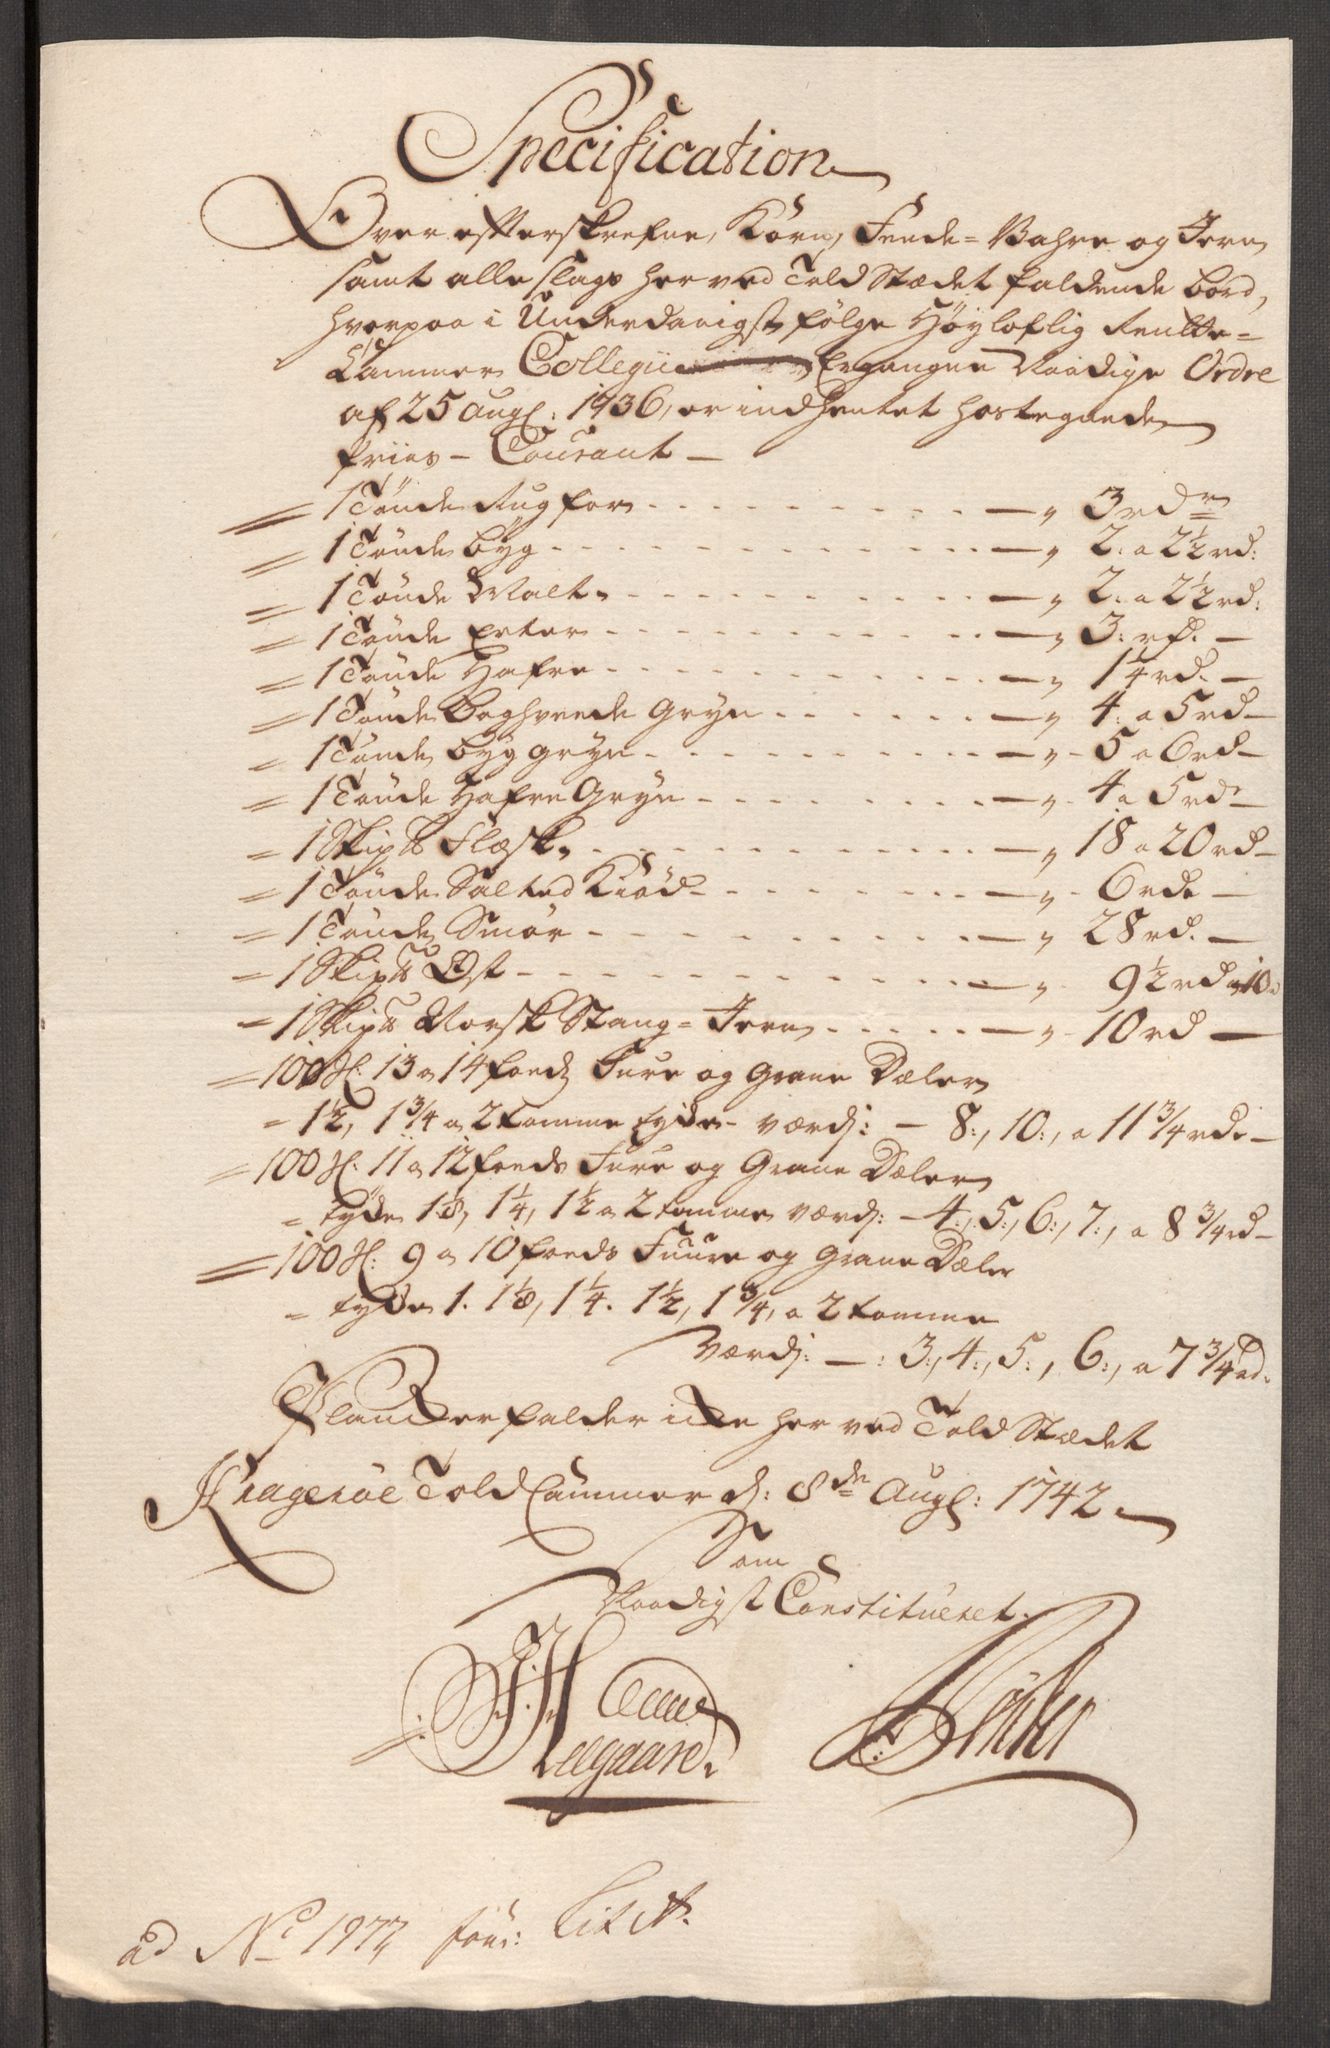 Specification
Over efterskrefne, Körn, Feede=Vahre og Jern
samt alle slags her ved Told Stædet faldende bord,
hvorpaa i Underdanigst følge Høyloflig Rentte=
Cammer Collegii Ergangne Naadige Ordre
af 25 Augs: 1736, er indhentet hostegnede
Priis - Courant -
1 Tönde Rug for - 3 rdr
1 Tönde Byg - 2. a 2½ rd:
1 Tönde Malt - 2. a 2½ rd:
1 Tönde Erter - 3: rd. -
1 Tönde Hafre - 1¼ rd. -
1 Tönde Boghvede Gryn - 4. a 5 rd -
1 Tönde Byg gryn - 5 a 6 rd -
1 Tönde Hafre Gryn - 4 a 5 rd -
1 Skip℔ Flæsk - 18 a 20 rd -
1 Tönde Salted Kiöd - 6 rd -
1 Tönde Smör - 28 rd. -
1 Skip℔ Ost - 9½ rd a 10
1 Skip℔ Norsk Stang=Jern - 10 rd -
100 st: 13 a 14 foeds Fure og Grane Dæler
1½, 1¾ a 2 tomme tyke værdj: - 8:, 10:, a 11¾ rd -
100 st: 11 a 12 foeds Fure og Grane Dæler
tyke 1⅛, 1¼, 1½ a 2 tomme værdj: - 4:, 5:, 6:, 7:, a 8¾ rd -
100 st: 9 a 10 foeds Fuure og Grane Dæler
tyke 1. 1⅛, 1¼. 1½, 1¾, a 2 tomme
Værdj: - : 3:, 4:, 5:, 6:, a 7¾ rd.
Plancker falder icke her ved Told Stædet
Kragerøe Told Cammer d: 8de Augs: 1742
Som
Naadigst Constitueret.
ad No 1977 Lit A.